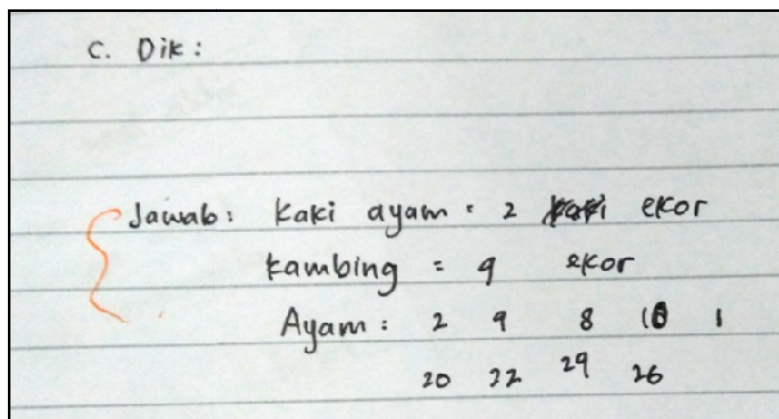 C. Dik:
Jawab: kaki ayam = 2 ekor
kambing = 4 ekor
Ayam: 2 4 8 10 1
20 22 24 26